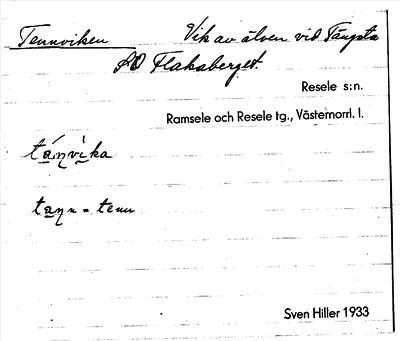 Tennviken Vik av älven vid Tängsta
SO Flakaberget.
Resele s:n.
Ramsele och Resele tg., Västernorrl. l.
tá̱ŋvì̱ka
ta̱ŋn = tenn
Sven Hiller 1933